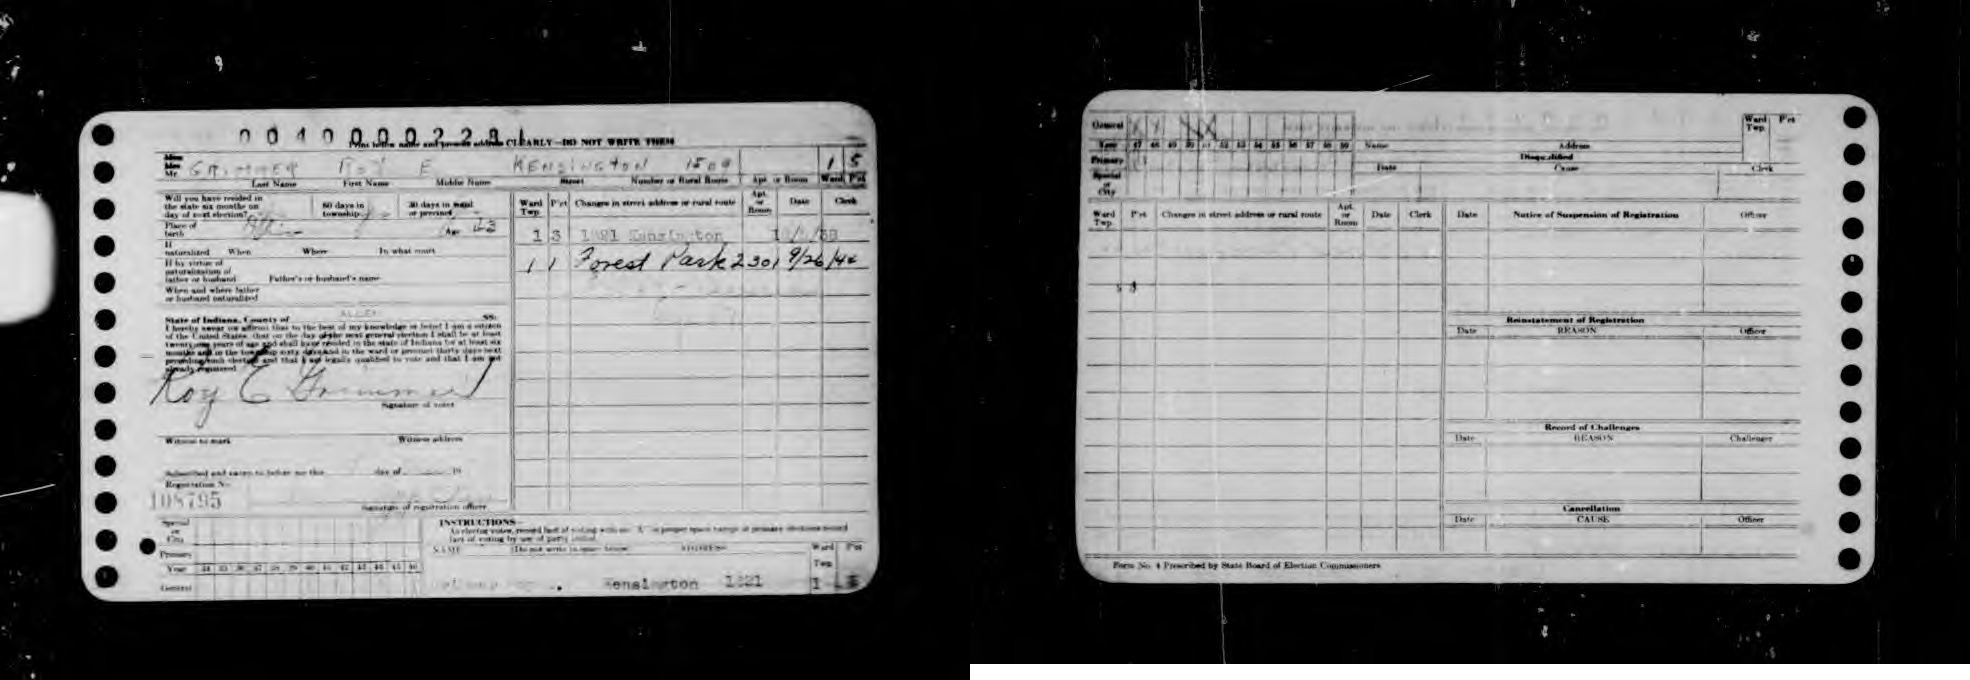 0040000022
Print below name and present address CLEARLY—DO NOT WRITE THEM
Miss
Mrs
Mr. GRIMMER ROY E KENSINGTON 1509 1 5
Last Name First Name Middle Name Street Number or Rural Route Apt. or Room Ward P'ct
Will you have resided in the state six months on day of next election? 60 days in township 30 days in ward or precinct
Place of birth Age
If naturalized When Where In what court
If by virtue of naturalization of father or husband Father's or husband's name
When and where father or husband naturalized
State of Indiana, County of ALLEN SS:
I hereby swear (or affirm) that to the best of my knowledge or belief I am a citizen
of the United States, that on the day of the next general election I shall be at least
twenty-one years of age and shall have resided in the state of Indiana for at least six
months and in the township sixty days and in the ward or precinct thirty days next
preceding such election and that I am legally qualified to vote and that I am not
already registered.
Roy E Grimmer
Signature of voter
Witness to mark Witness address
Subscribed and sworn to before me this day of 19
Registration No.
108795
Signature of registration officer
Ward Twp. P'ct Changes in street address or rural route Apt. or Room Date Clerk
1 3 1821 Kensington
1 1 Forest Park 2301 9/26/44
Special or City
Primary
Year 34 35 36 37 38 39 40 41 42 43 44 45 46
General
INSTRUCTIONS—
NAME (Do not write in space below) ADDRESS Ward Twp P'ct
Kensington 1821 1
General
Year 47 48 49 50 51 52 53 54 55 56 57 58 59
Primary
Special or City
Name Address Ward Twp. P'ct
Disqualified
Date Cause Clerk
Ward Twp. P'ct Changes in street address or rural route Apt. or Room Date Clerk
Date Notice of Suspension of Registration Officer
Reinstatement of Registration
Date REASON Officer
Record of Challenges
Date REASON Challenger
Cancellation
Date CAUSE Officer
Form No. 4 Prescribed by State Board of Election Commissioners